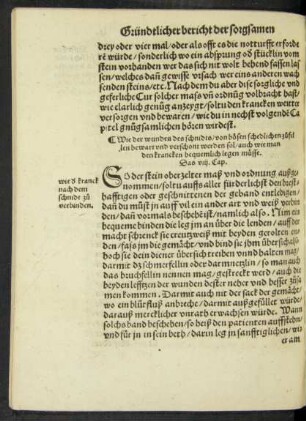 Gründtlicher bericht der sorgsamen
drey oder vier mal / oder als offt es die notturfft erforde
rẽ würde / sonderlich wo ein absprung oď stücklin vom
stein vorhanden wer das sich nit wolt behend fassen las
sen / welches dañ gewisse vrsach wer eins anderen wach
senden steins / etc. Nach dem du aber dise sorgliche vnd
geferliche Cur solcher mass vñ ordnũg volbracht hast /
wie clarlich genũg anzeygt / soltu den krancken weitter
versorgen vnd bewaren / wie du in nechst volgendẽ Ca
pitel gnůgsamlichen hören wirdest.
Wie der wunden des schnidts / von bösen schedlichen zůfel
len bewart vnd verschont werden sol / auch wie man
den krancken bequemlich legen müsse.
Das viij. Cap.
wie ď kranck
nach dem
schnide zů
verbinden.
SO der stein obezelter mass vnd ordnung außge-
nommen / soltu auffs aller fürderlichst den brest-
hafftigen oder geschnittenen der geband entledigen /
dañ du můst jn auff vil ein ander art vnd weiß verbin
den / dañ vormals beschehẽ ist / namlich also. Nim ein
bequeme binden die leg jm an über die lenden / auff der
macht schrenck sie creutzweiß mit beyden gerolten en-
den / fass jm die gemächt / vnd bind sie jhm überschalb
hoch sie dein diener übersich treiben vnnd halten mag /
beyden lefftzen der wunden dester neher vnd besser zůsa
men kommen. Darmit auch nit der sack der gemächt /
wo ein blůtfluß anbricht / darmit außgefüllt würde
darauß mercklicher vnrath erwachsen würde. Wann
solchs hand bescheben / so heiß den patienten auffstehn /
vnd für jn in sein beth / darin leg jn sanfftiglichen / wie
er am